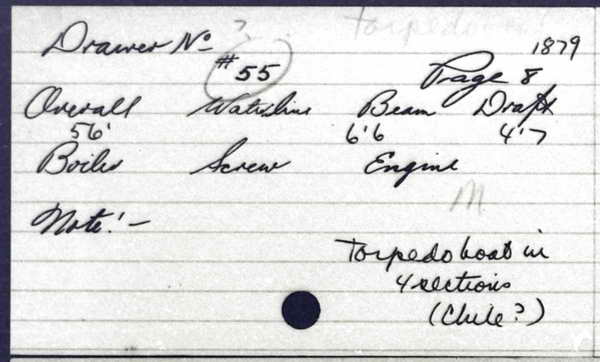 Torpedo
Drawer No ? 1879
#55 Page 8
Overall Waterline Beam Draft
56' 6'6 4'7
Boiler Screw Engine
M
Note:-
Torpedo boat in
4 sections
(Chile?)